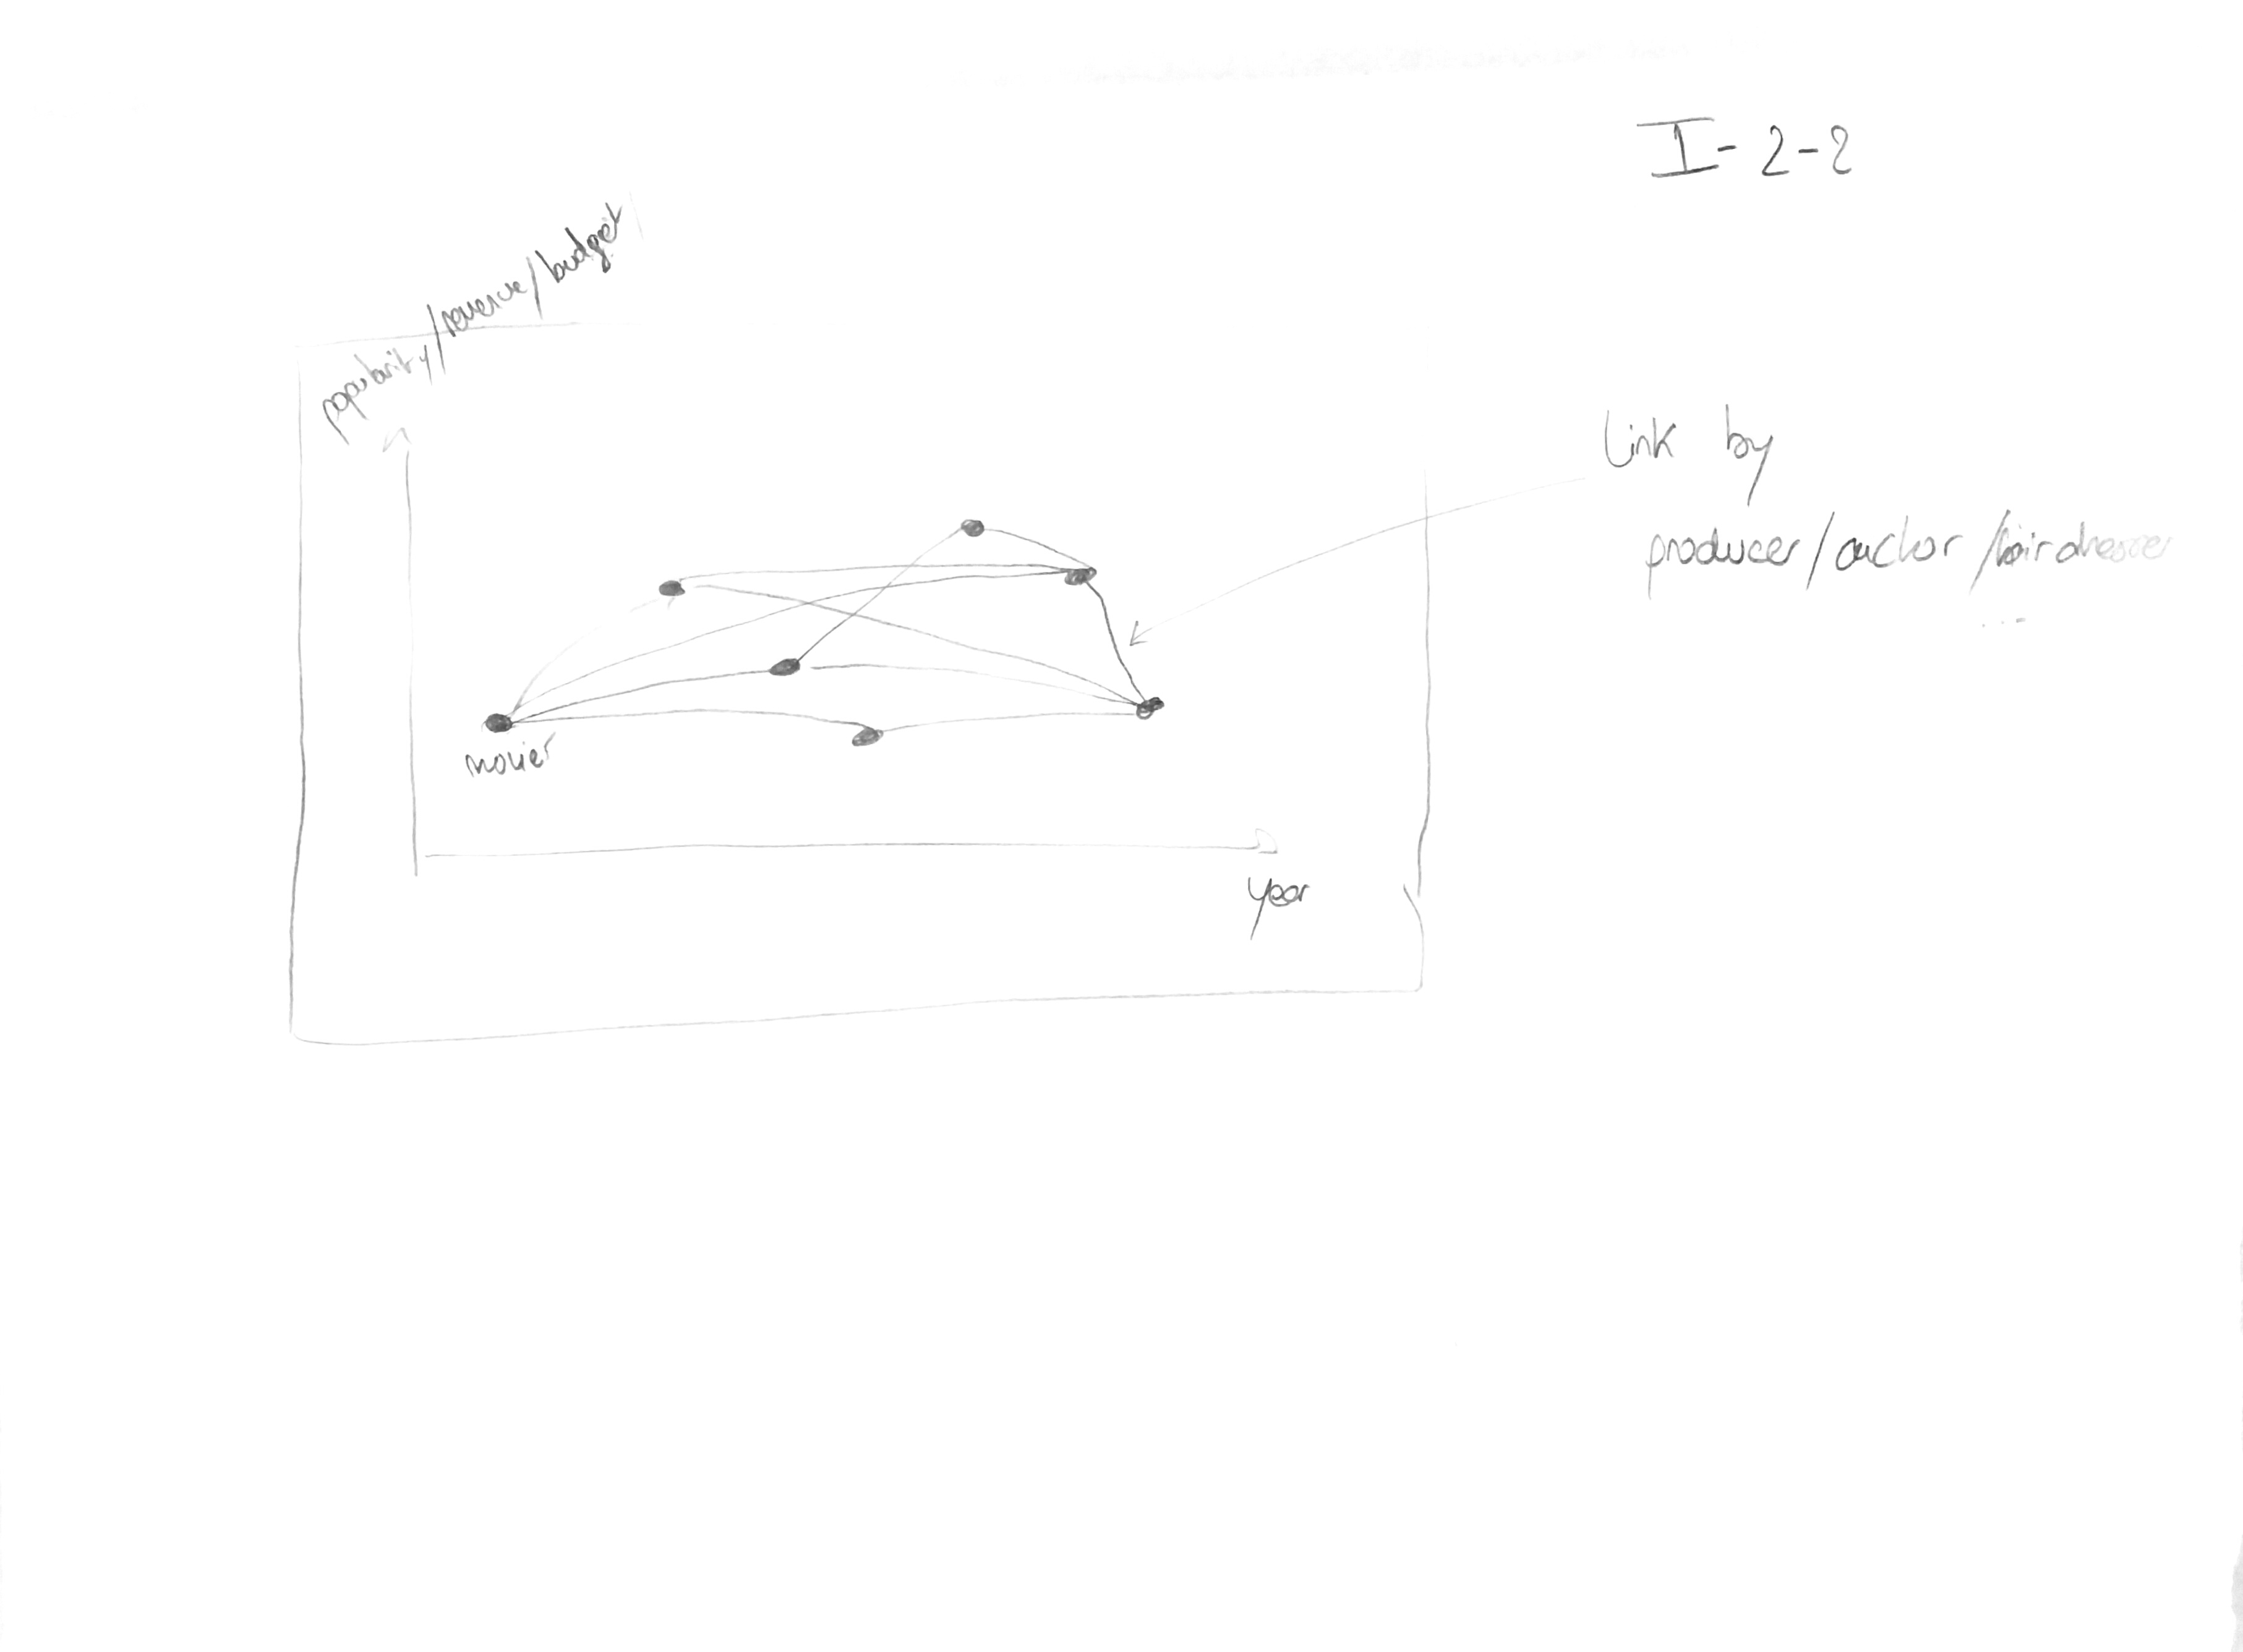 I-2-2
popularity/revenue/budget
link by
producer/actor/hairdresser
...
movies
year